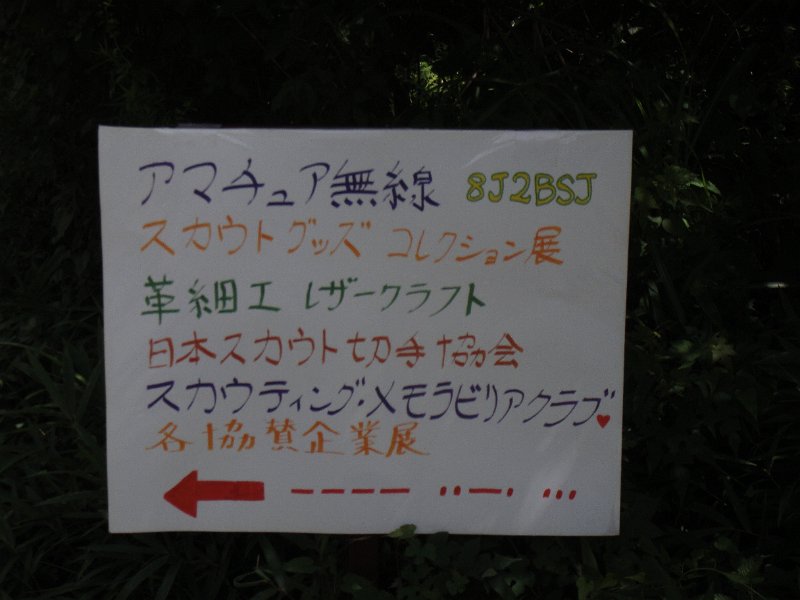 アマチュア無線 8J2BSJ
スカウトグッズ コレクション展
革細工 レザークラフト
日本スカウト切手協会
スカウティング・メモラビリアクラブ♥
各協賛企業展
← ---- ··-· ···